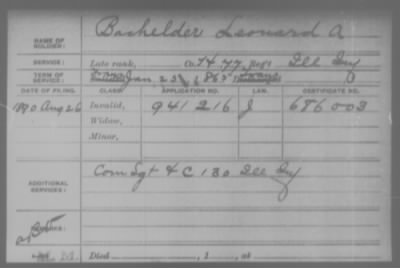 NAME OF SOLDIER: Bachelder Leonard A
SERVICE: Late rank, Co. H. 77, Reg't Ill Inf
TERM OF SERVICE: Jan. 23, 1865
DATE OF FILING. CLASS. APPLICATION NO. LAW. CERTIFICATE NO.
1890 Aug 26 Invalid, 941 216 J 686003
Widow,
Minor,
ADDITIONAL SERVICES: Com Sgt & C 130 Ill Inf
REMARKS:
Died , 1 , at